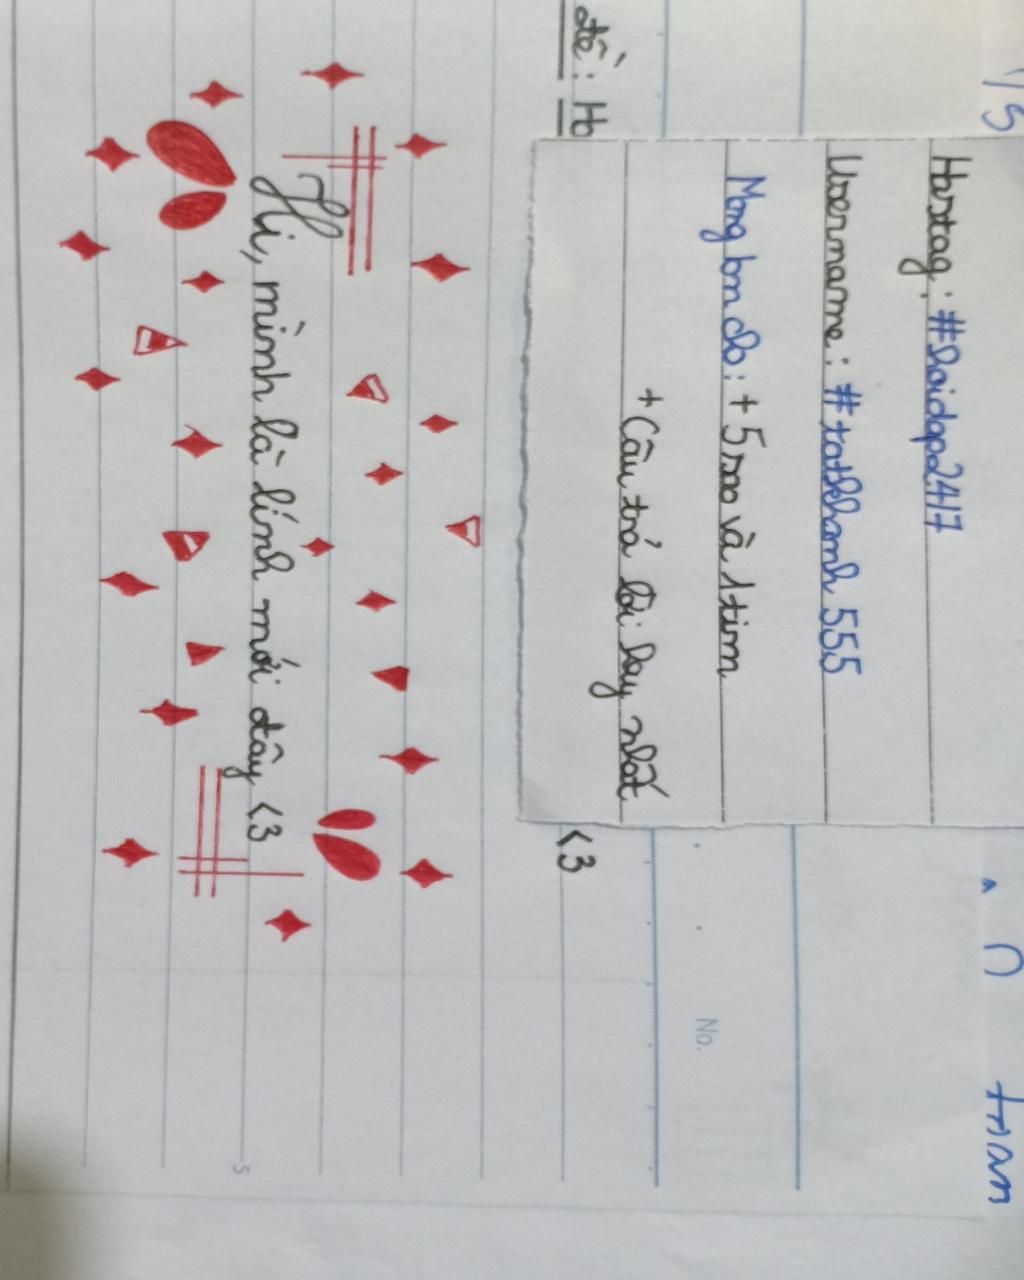 Hastag: #hoidap247
Username: #tatkhanh555
Mong bn cho: + 5 sao và 1 tim
+ Câu trả lời hay nhất
đề: Ho
<3
No.
Hi, mình là lính mới đây <3
5